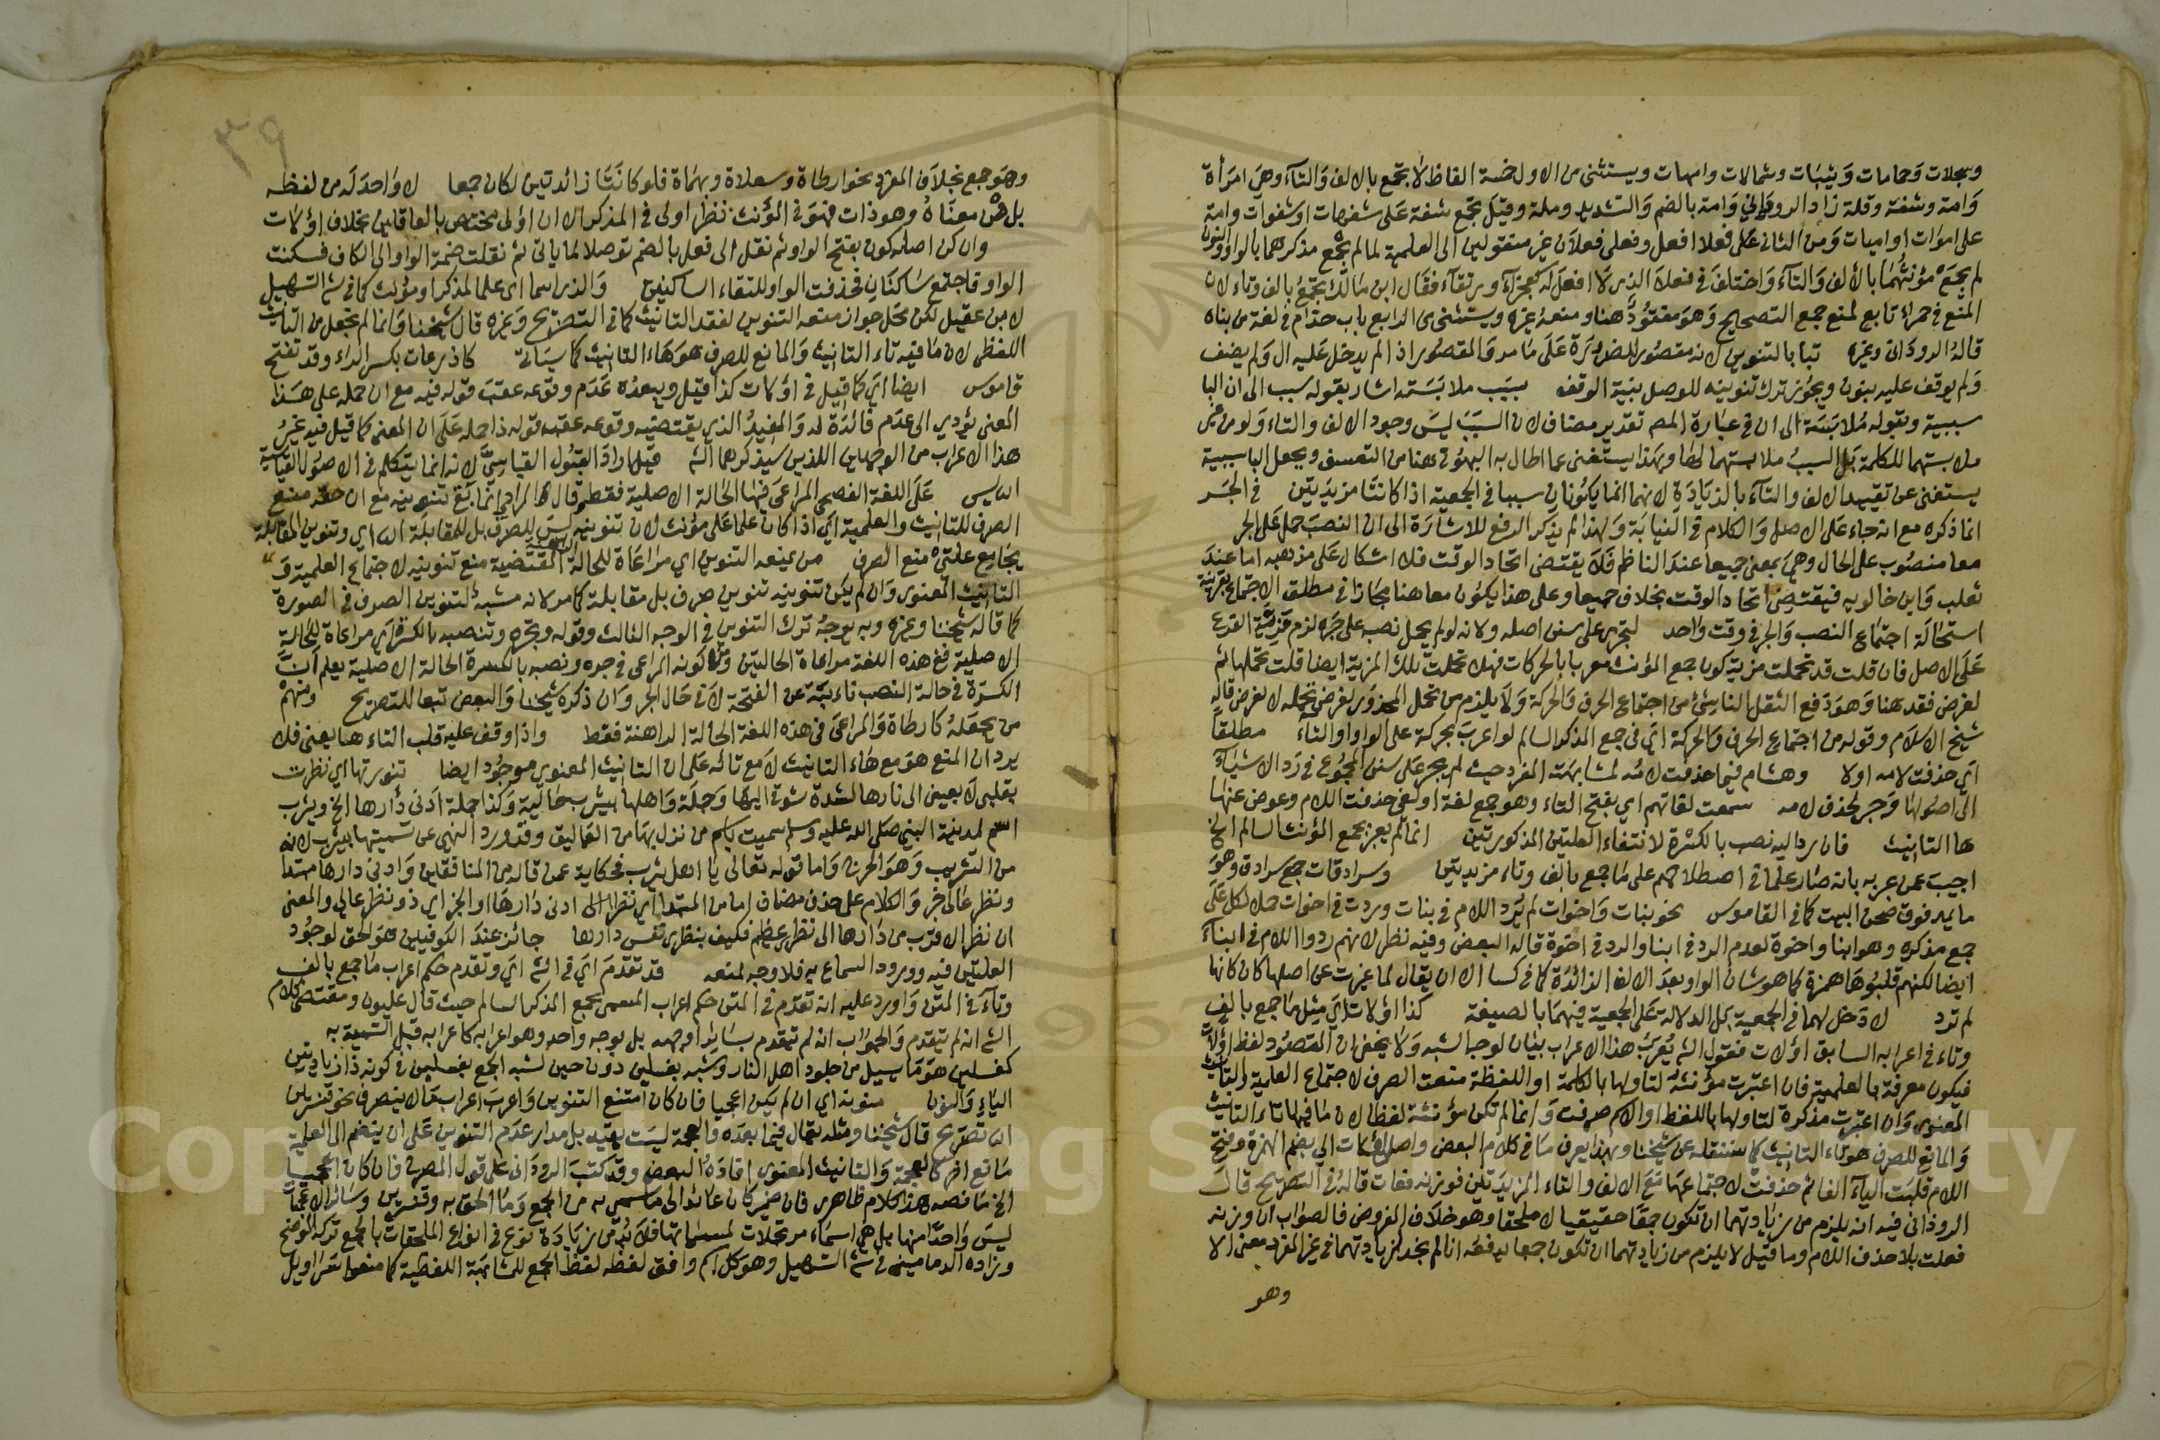 وسجلات وحمامات وثيبات وشمالات وامهات ويستثنى من الاول خمسة الفاظ لا تجمع بالالف والتاء وهي امرأة
وامة وشفة وقلة زاد الروداني وامة بالضم والتشديد وملة وقيل تجمع شفة على شفهات او شفوات وامة
على اموات او اميات ومن الثاني على فعلا افعل وفعلى فعلان غير منقولين الى العلمية لما لم يجمع مذكرهما بالواو والنون
لم يجمع مؤنثهما بالالف والتاء واختلف في فعلاء الذي لا افعل له كعجزاء ورتقاء فقال ابن مالك تجمع بالف وتاء لان
المنع في حمراء تابع لمنع جمع التصحيح وهو مفقود هنا ومنعه غيره ويستثنى من الرابع باب حذام في لغة من بناه
قاله الروداني وغيره تبا بالتنوين لانه مقصور للضرورة على ما مر والمقصور اذا لم يدخل عليه ال ولم يضف
ولم يوقف عليه ينون ويجوز ترك تنوينه للوصل بنية الوقف بسبب ملابسته اشار بقوله سبب الى ان البا
سببية وبقوله ملابسة الى ان في عبارة المص تقدير مضاف لان السبب ليس وجود الالف والتاء ولو من غير
ملابستهما للكلمة بل السبب ملابستهما لها وبهذا يستغنى عما اطال به البهوتي هنا من التعسف ويجعل البا سببية
يستغنى عن تقييد الالف والتاء بالزيادة لانهما انما يكونان سببا في الجمعية اذا كانتا مزيدتين في الجر
انما ذكره مع انه جاء على الاصل والكلام في النيابة ولهذا لم يذكر الرفع للاشارة الى ان النصب حمل على الجر
معا منصوب على الحال وهي بمعنى جميعا عند الناظم فلا يقتضى اتحاد الوقت فلا اشكال على مذهبه اما عند
ثعلب وابن خالويه فيقتضي اتحاد الوقت بخلاف جميعا وعلى هذا يكون معا هنا مجازا في مطلق الاجتماع بقرينة
استحالة اجتماع النصب والجر في وقت واحد ليجرى على سنن اصله ولانه لو لم يحمل نصبه على جره لزم مزية الفرع
على الاصل فان قلت قد تحملت مزية كون جمع المؤنث معربا بالحركات فهلا تحملت تلك المزية ايضا قلت تحملها ثم
لغرض فقد هنا وهو دفع الثقل الناشئ من اجتماع الحرف والحركة ولا يلزم من تحمل المحذور لغرض تحمله لا لغرض قاله
شيخ الاسلام وقوله من اجتماع الحرف والحركة اي في جمع المذكر السالم لو اعرب بحركة على الواو او التاء مطلقا
اي حذفت لامه اولا وهشام فيما حذفت لامه لمشابهته المفرد حيث لم يجر على سنن المجموع في رد الاشياء
الى اصولها وجر لحذف لامه سمعت لغاتهم اي بفتح التاء وهو جمع لغة او لغى حذفت اللام وعوض عنها
ها التانيث فان رد اليه نصب بالكسرة لانتفاء العلتين المذكورتين انما لم يعبر بجمع المؤنث السالم الخ
اجيب عمن عبر به بانه صار علما في اصطلاحهم على ما جمع بالف وتاء مزيدتين وسرادقات جمع سرادق وهو
ما يمد فوق صحن البيت كما في القاموس نحو بنات واخوات لم يرد اللام في بنات وردت في اخوات حملا لكل على
جمع مذكره وهو ابنا واخوة لعدم الرد في ابنا والرد في اخوة قاله البعض وفيه نظر لانهم ردوا اللام في ابناء
ايضا لكنهم قلبوها همزة كما هو شان الواو بعد الالف الزائدة كما في كسا الا ان يقال لما غيرت عن اصلها كان كانها
لم ترد لا دخل لهما في الجمعية بل الدلالة على الجمعية فيهما بالصيغة كذا اولات اي مثل ما جمع بالف
وتاء في اعرابه السابق اولات فنقول الشم يعرب هذا الاعراب بيان لوجه الشبه ولا يخفى ان المقصود لفظ اولات
فيكون معرفة بالعلمية فان اعتبرت مؤنثة لتاولها بالكلمة او اللفظة منعت الصرف لاجتماع العلمية والتانيث
المعنوي وان اعتبرت مذكرة لتاولها باللفظ او الاسم صرفت وانما لم تكن مؤنثة لفظا لان ما فيها تاء التانيث
والمانع للصرف هو هاء التانيث كما سننقله عن شيخنا وبهذا يعرف ما في كلام البعض واصل اولات الي بضم الهمزة وفتح
اللام قلبت الياء الفا ثم حذفت لاجتماعها مع الالف والتاء المزيدتين فوزنه فعات قاله في التصريح قال
الروداني فيه انه يلزم من زيادتهما ان تكون جمعا حقيقيا لا ملحقا وهو خلاف الفرض فالصواب ان وزنه
فعلت بلا حذف اللام وما قيل لا يلزم من زيادتهما ان تكون جمعا يدفعه انا لم نجد لزيادتهما في غير المفرد معنى الا
وهو
٣٩
وهو جمع بخلاف المفرد نحو ارطاة وسعلاة وبهماة فلو كانتا زائدتين لكان جمعا لا واحد له من لفظه
بل من معناه وهو ذات فهو في المؤنث نظير اولى في المذكر الا ان اولى مختص بالعاقلين بخلاف اولات
وان كن اصله كون بفتح الواو ثم نقل الى فعل بالضم توصلا لما ياتي ثم نقلت ضمة الواو الى الكاف فسكنت
الواو فاجتمع ساكنان فحذفت الواو للتقاء الساكنين والذي اسما اي علما لمذكر او مؤنث كما في شم التسهيل
لابن عقيل لكن محل جواز منعه التنوين لفقد التانيث كما في التصريح وغيره قال شيخنا وانما لم تجعل من التانيث
اللفظي لان ما فيه تاء التانيث والمانع للصرف هو هاء التانيث كما سياتي كاذرعات بكسر الراء وقد تفتح
قاموس ايضا اي كما قيل في اولات كذا قيل ويبعده عدم وقوعه عقب قوله فيه مع ان حمله على هذا
المعنى يؤدي الى عدم فائدة له والمفيد الذي يقتضيه وقوعه عقب قوله ذا حمله على ان المعنى كما قيل فيه غير
هذا الاعراب من الوجهين اللذين سيذكرهما الشم قيل اراد القبول القياسي لانه انما يتكلم في الاصول القياسية
اه يس على اللغة الفصحى المراعى فيها الحالة الاصلية فقط قال الرادي انما بقي تنوينه مع ان حقه منع
الصرف للتانيث والعلمية اي اذا كان علما على مؤنث لان تنوينه ليس للصرف بل للمقابلة اه اي وتنوين المقابلة
يجامع علتي منع الصرف من يمنعه التنوين اي مراعاة للحالة المقتضية منع تنوينه لاجتماع العلمية و
التانيث المعنوي وان لم يكن تنوينه تنوين صرف بل مقابلة كما مر لانه مشبه لتنوين الصرف في الصورة
كما قاله شيخنا وغيره وبه يوجه ترك التنوين في الوجه الثالث وقوله ويجره وينصبه بالكسرة اي مراعاة للحالة
الاصلية ففي هذه اللغة مراعاة الحالتين وكونه المراعى في جره ونصبه بالكسرة الحالة الاصلية يعلم ان
الكسرة في حالة النصب نائبة عن الفتحة لا في حال الجر وان ذكره شيخنا والبعض تبعا للتصريح ومنهم
من يجعله كارطاة والمراعى في هذه اللغة الحالة الراهنة فقط واذا وقف عليه قلب التاء ها يعني فلا
يرد ان المنع هو مع هاء التانيث لا مع تائه على ان التانيث المعنوي موجود ايضا تنورتها اي نظرت
بقلبي لا بعيني الى نارها لشدة شوقي اليها وجملة واهلها بيثرب حالية وكذا جملة ادنى دارها الخ ويثرب
اسم لمدينة النبي صلى الله عليه وسلم سميت باسم من نزل بها من العماليق وقد ورد النهي عن تسميتها بيثرب لانه
من التثريب وهو الحرج واما قوله تعالى يا اهل يثرب فحكاية عمن قاله من المنافقين وادنى دارها مبتدا
ونظر عالى خبر والكلام على حذف مضاف اما من المبتدا اي نظر الى ادنى دارها او الخبر اي ذو نظر عالي والمعنى
ان نظر الاقرب من دارها الى نظر عظيم فكيف بنظري نفس دارها جائز عند الكوفيين هو الحق لوجود
العلتين فيه وورود السماع به فلا وجه لمنعه قد تقدم اي في الشم اي وتقدم حكم اعراب ما جمع بالف
وتاء في المتن واورد عليه انه تقدم في المتن حكم اعراب المسمى بجمع المذكر السالم حيث قال عليون ومقتضى كلام
الشم انه لم يتقدم والجواب انه لم يتقدم بسائر اوجهه بل بوجه واحد وهو اعرابه كاعرابه قبل التسمية به
كغسلين هو ما يسيل من جلود اهل النار وشبه بغسلين دون حين لشبه الجمع بغسلين في كونه ذا زيادتين
الياء والنون منونة اي ان لم يكن اعجميا فان كان امتنع التنوين واعرب اعراب مالا ينصرف نحو قنسرين
اه تصريح قال شيخنا ومثله يقال فيما بعده والعجمة ليست بقيد بل مدار عدم التنوين على ان ينضم الى العلمية
مانع اخر كالعجمة والتانيث المعنوي افاده البعض وقد كتب الروداني على قول المصرح فان كان اعجميا
الخ ما نصه هذا كلام ظاهري فان ضمير كان عائد الى ما سمي به من الجمع وما الحق به وقنسرين وسائر الاعجميات
ليس واحدا منها بل هي اسماء مرتجلات لمسمياتها فلا بد من زيادة نوع في انواع الملحقات بالجمع تركه الموضح
وزاده الدماميني في شم التسهيل وهو كل اسم وافق لفظه لفظ الجمع للمشابهة اللفظية كما منعوا سراويل